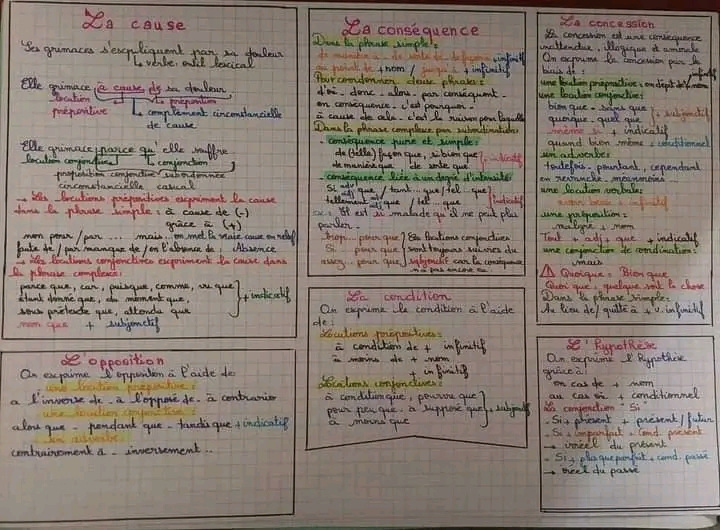 La cause
Ses grimaces s'expliquent par sa douleur
↳ verbe: outil lexical
Elle grimace à cause de sa douleur
locution
prépositive
↳ préposition
↳ complément circonstancielle
de cause.
Elle grimace parce qu'elle souffre
locution conjonctive
↳ conjonction
proposition conjonctive subordonnée
circonstancielle causal
→ Les locutions prépositives expriment la cause
dans la phrase simple: à cause de (-)
grâce à (+)
non pour/par ... mais.. on met la vraie cause en relief
faute de/par manque de/en l'absence de: Absence
→ Les locutions conjonctives expriment la cause dans
la phrase complexe:
parce que, car, puisque, comme, vu que
étant donné que, du moment que,
sous prétexte que, attendu que
+ indicatif
non que + subjonctif
L'opposition
On exprime l'opposition à l'aide de
une locution prépositive:
à l'inverse de - à l'opposé de - à contrario
une locution conjonctive:
alors que - pendant que - tandis que + indicatif
un adverbe:
contrairement à - inversement ..
La conséquence
Dans la phrase simple:
de manière à - de sorte de - de façon à + infinitif
au point de + nom / jusqu'à + infinitif
Pour coordonner deux phrases:
d'où - donc - alors - par conséquent -
en conséquence - c'est pourquoi -
à cause de cela - c'est la raison pour laquelle
Dans la phrase complexe par subordination:
- conséquence pure et simple:
de (telle) façon que, si bien que
de manière que de sorte que
indicatif
- conséquence liée à un degré d'intensité:
Si adv/adj que / tant ... que / tel - que
tellement adv/adj que / tel ... que
indicatif
ex: Il est si malade qu'il ne peut plus
parler -
trop... pour que
Si .. pour que
assez.. pour que
Ces locutions conjonctives
sont toujours suivies du
subjonctif car la conséquence
n'a pas encore eu.
La condition
On exprime la condition à l'aide
de:
Locutions prépositives:
à condition de + infinitif
à moins de + nom
+ infinitif
Locutions conjonctives:
à condition que, pourvu que
pour peu que - à supposé que
à moins que
+ subjonctif
La concession
La concession est une conséquence
inattendue, illogique et amorale
On exprime la concession par le
biais de:
une locution prépositive: en dépit de + nom
infinitif
une locution conjonctive:
bien que - sans que
quoique, quel que
+ subjonctif
même si + indicatif
quand bien même + conditionnel
un adverbe:
Toutefois, pourtant, cependant
en revanche, néanmoins
une locution verbale:
avoir beau + infinitif
une préposition:
malgré + nom
Tout + adj + que + indicatif
une conjonction de coordination:
mais
⚠ Quoique: Bien que
Quoi que: quelque soit la chose
Dans la phrase simple:
Au lieu de / quitte à + v. infinitif
L'Hypothèse
On exprime l'hypothèse
grâce à:
en cas de + nom
au cas où + conditionnel
La conjonction "Si"
- Si + présent + présent / futur
- Si + imparfait + cond. présent
→ irréel du présent
- Si + plaqueparfait + cond. passé
→ iréel du passé